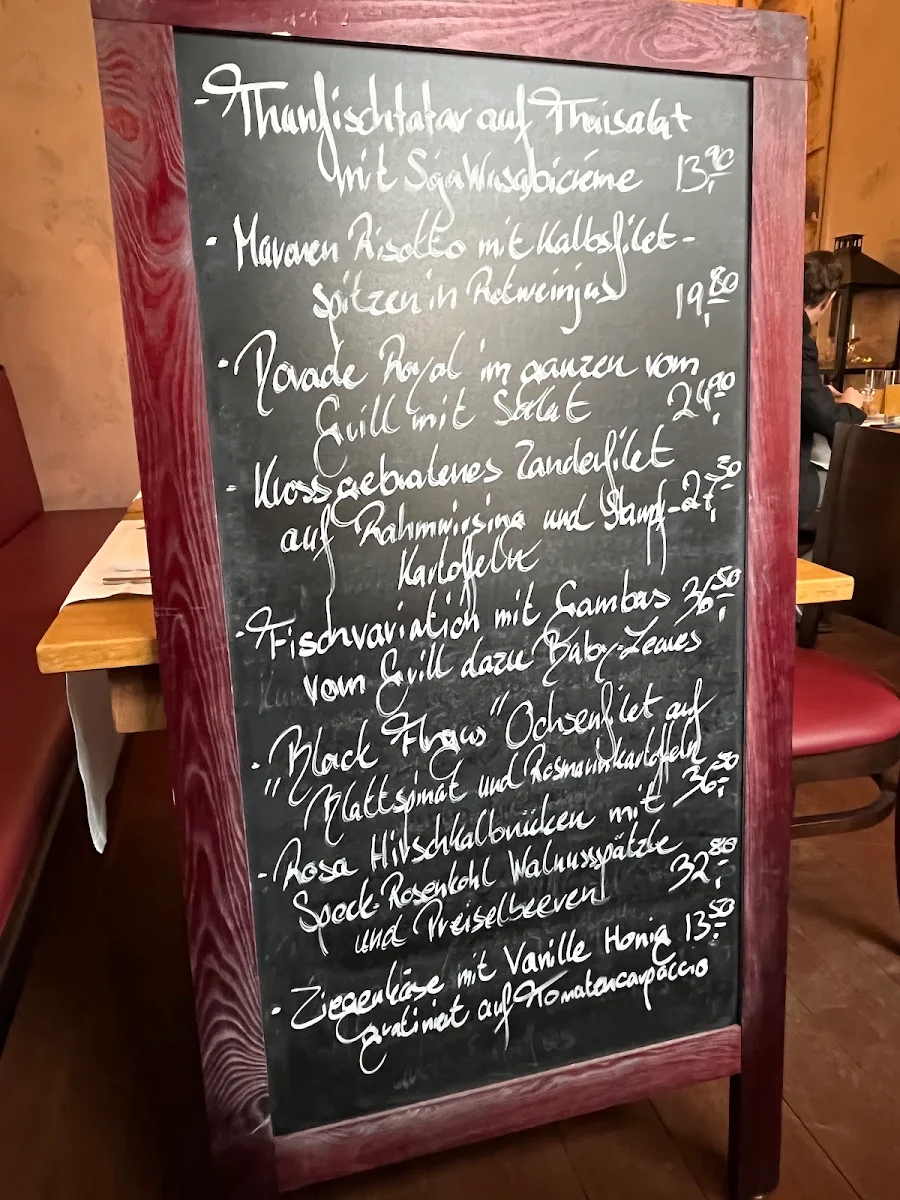 - Thunfischtatar auf Thaisalat
mit Soja Wasabicréme 13,90
· Maronen Risotto mit Kalbsfilet-
spitzen in Rotweinjus 19,80
· Dorade Royal im ganzen vom
Grill mit Salat 24,90
- Kross gebratenes Zanderfilet
auf Rahmwirsing und Stampf- 27,50
Kartoffeln
· Fischvariation mit Gambas 36,50
vom Grill dazu Baby-Leaves
· "Black Angus" Ochsenfilet auf
Blattspinat und Rosmarinkartoffeln 36,50
- Rosa Hirschkalbrücken mit
Speck-Rosenkohl Walnussspätzle 32,80
und Preiselbeeren
· Ziegenkäse mit Vanille Honig 13,50
gratiniert auf Tomatencarpaccio